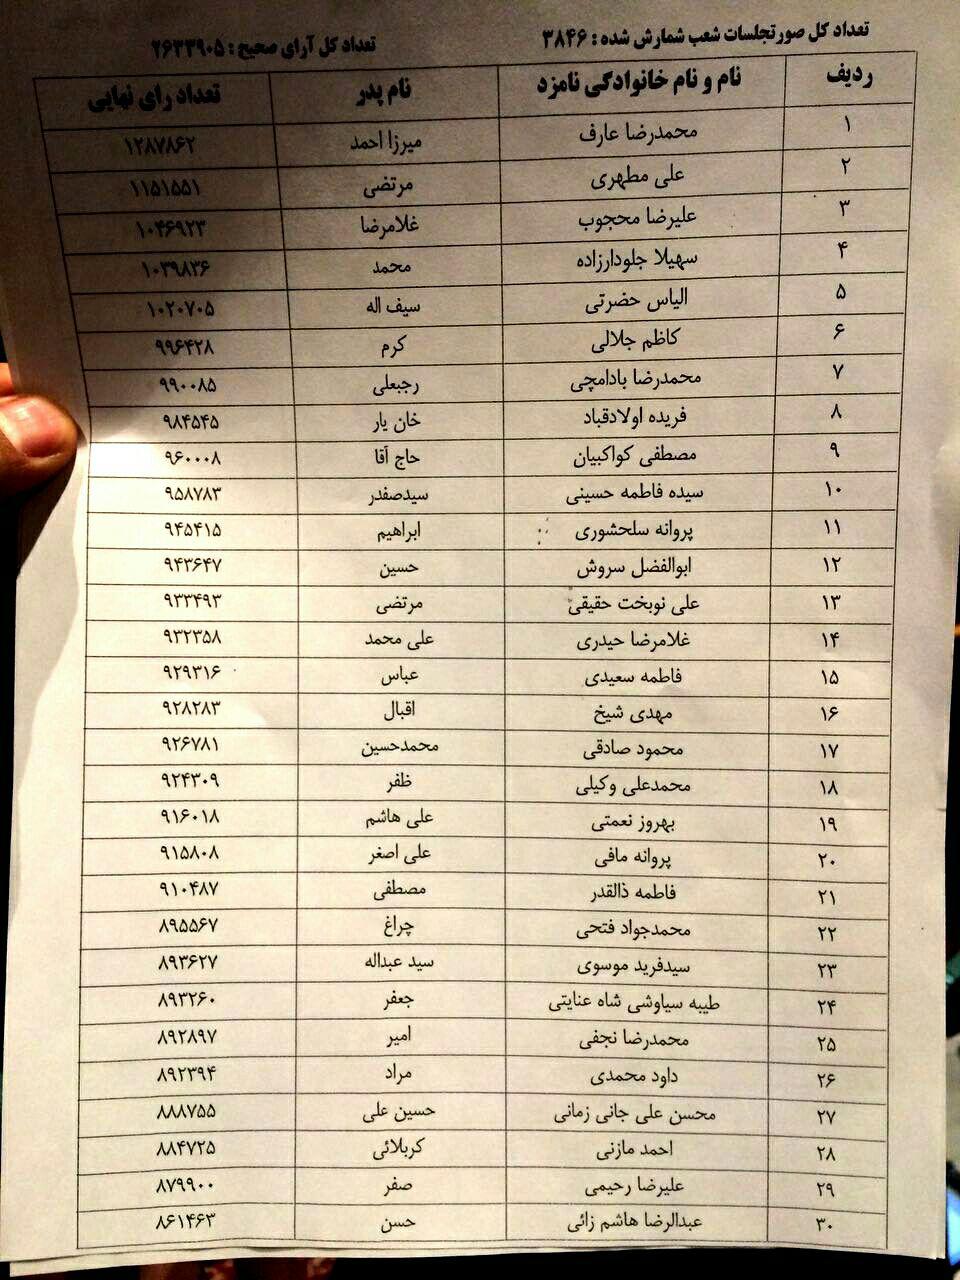 تعداد کل صورتجلسات شعب شمارش شده : ۳۸۴۶ تعداد کل آرای صحیح : ۲۶۳۳۹۰۵
ردیف نام و نام خانوادگی نامزد نام پدر تعداد رای نهایی
۱ محمدرضا عارف میرزا احمد ۱۲۸۷۸۶۲
۲ علی مطهری مرتضی ۱۱۵۱۵۵۱
۳ علیرضا محجوب غلامرضا ۱۰۴۶۹۲۳
۴ سهیلا جلودارزاده محمد ۱۰۳۹۸۳۶
۵ الیاس حضرتی سیف اله ۱۰۲۰۷۰۵
۶ کاظم جلالی کرم ۹۹۶۴۲۸
۷ محمدرضا بادامچی رجبعلی ۹۹۰۰۸۵
۸ فریده اولادقباد خان یار ۹۸۴۵۴۵
۹ مصطفی کواکبیان حاج آقا ۹۶۰۰۰۸
۱۰ سیده فاطمه حسینی سیدصفدر ۹۵۸۷۸۳
۱۱ پروانه سلحشوری ابراهیم ۹۴۵۴۱۵
۱۲ ابوالفضل سروش حسین ۹۴۳۶۴۷
۱۳ علی نوبخت حقیقی مرتضی ۹۳۳۴۹۳
۱۴ غلامرضا حیدری علی محمد ۹۳۲۳۵۸
۱۵ فاطمه سعیدی عباس ۹۲۹۳۱۶
۱۶ مهدی شیخ اقبال ۹۲۸۲۸۳
۱۷ محمود صادقی محمدحسین ۹۲۶۷۸۱
۱۸ محمدعلی وکیلی ظفر ۹۲۴۳۰۹
۱۹ بهروز نعمتی علی هاشم ۹۱۶۰۱۸
۲۰ پروانه مافی علی اصغر ۹۱۵۸۰۸
۲۱ فاطمه ذالقدر مصطفی ۹۱۰۴۸۷
۲۲ محمدجواد فتحی چراغ ۸۹۵۵۶۷
۲۳ سیدفرید موسوی سید عبداله ۸۹۳۶۲۷
۲۴ طیبه سیاوشی شاه عنایتی جعفر ۸۹۳۲۶۰
۲۵ محمدرضا نجفی امیر ۸۹۲۸۹۷
۲۶ داود محمدی مراد ۸۹۲۳۹۴
۲۷ محسن علی جانی زمانی حسین علی ۸۸۸۷۵۵
۲۸ احمد مازنی کربلائی ۸۸۴۷۲۵
۲۹ علیرضا رحیمی صفر ۸۷۹۹۰۰
۳۰ عبدالرضا هاشم زائی حسن ۸۶۱۴۶۳